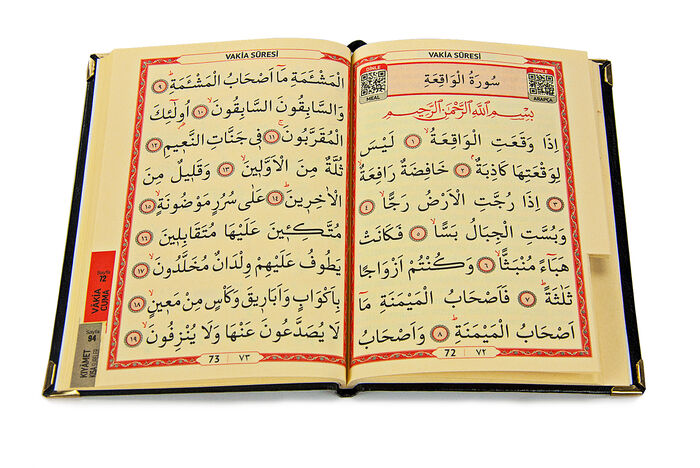 VAKİA SÛRESİ
DİNLE
MEAL
سُورَةُ الْوَاقِعَةِ
DİNLE
ARAPÇA
بِسْمِ اللّٰهِ الرَّحْمٰنِ الرَّحِيمِ
اِذَا وَقَعَتِ الْوَاقِعَةُۙ ﴿١﴾ لَيْسَ
لِوَقْعَتِهَا كَاذِبَةٌۢ ﴿٢﴾ خَافِضَةٌ رَافِعَةٌۙ
﴿٣﴾ اِذَا رُجَّتِ الْاَرْضُ رَجًّاۙ ﴿٤﴾
وَبُسَّتِ الْجِبَالُ بَسًّاۙ ﴿٥﴾ فَكَانَتْ
هَبَٓاءً مُنْبَثًّاۙ ﴿٦﴾ وَكُنْتُمْ اَزْوَاجًا
ثَلٰثَةًۜ ﴿٧﴾ فَاَصْحَابُ الْمَيْمَنَةِ مَٓا
اَصْحَابُ الْمَيْمَنَةِۜ ﴿٨﴾ وَاَصْحَابُ
72 ٧٢
VAKİA SÛRESİ
الْمَشْـَٔمَةِ مَٓا اَصْحَابُ الْمَشْـَٔمَةِۜ ﴿٩﴾
وَالسَّابِقُونَ السَّابِقُونَۙ ﴿١٠﴾ اُولٰٓئِكَ
الْمُقَرَّبُونَۚ ﴿١١﴾ ف۪ي جَنَّاتِ النَّع۪يمِ ﴿١٢﴾
ثُلَّةٌ مِنَ الْاَوَّل۪ينَۙ ﴿١٣﴾ وَقَل۪يلٌ مِنَ
الْاٰخِر۪ينَۜ ﴿١٤﴾ عَلٰى سُرُرٍ مَوْضُونَةٍۙ ﴿١٥﴾
مُتَّكِـ۪ٔينَ عَلَيْهَا مُتَقَابِل۪ينَ ﴿١٦﴾
يَطُوفُ عَلَيْهِمْ وِلْدَانٌ مُخَلَّدُونَۙ ﴿١٧﴾
بِاَكْوَابٍ وَاَبَار۪يقَ وَكَأْسٍ مِنْ مَع۪ينٍۙ ﴿١٨﴾
لَا يُصَدَّعُونَ عَنْهَا وَلَا يُنْزِفُونَۙ ﴿١٩﴾
73 ٧٣
Sayfa
72
VAKİA
CUMA
Sayfa
94
KIYAMET
KISA SURELER